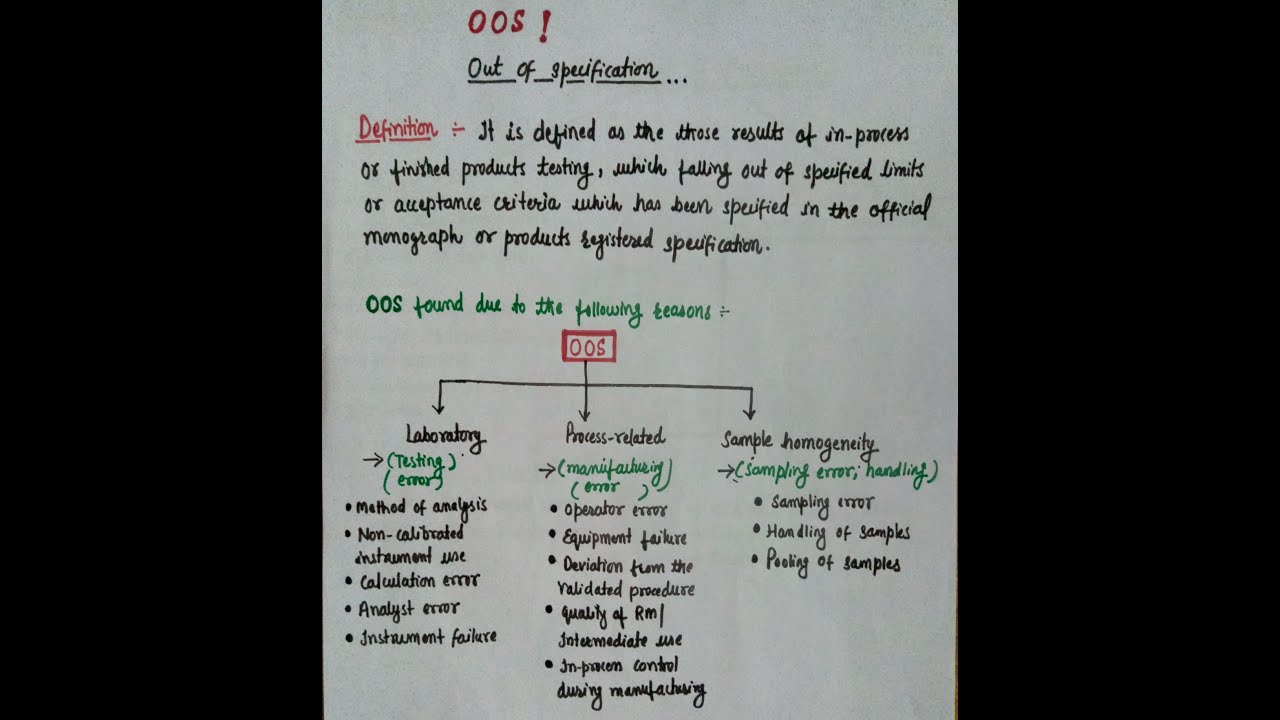 OOS !
Out of specification...
Definition :- It is defined as the those results of in-process
or finished products testing, which falling out of specified limits
or acceptance criteria which has been specified in the official
monograph or products registered specification.
OOS found due to the following reasons :-
OOS
Laboratory
→ (Testing)
(error)
• Method of analysis
• Non-calibrated
instrument use
• Calculation error
• Analyst error
• Instrument failure
Process-related
→ (manufacturing)
(error)
• Operator error
• Equipment failure
• Deviation from the
validated procedure
• quality of Rm/
Intermediate use
• In-process control
during manufacturing
Sample homogeneity
→ (sampling error; handling)
• Sampling error
• Handling of samples
• Pooling of samples